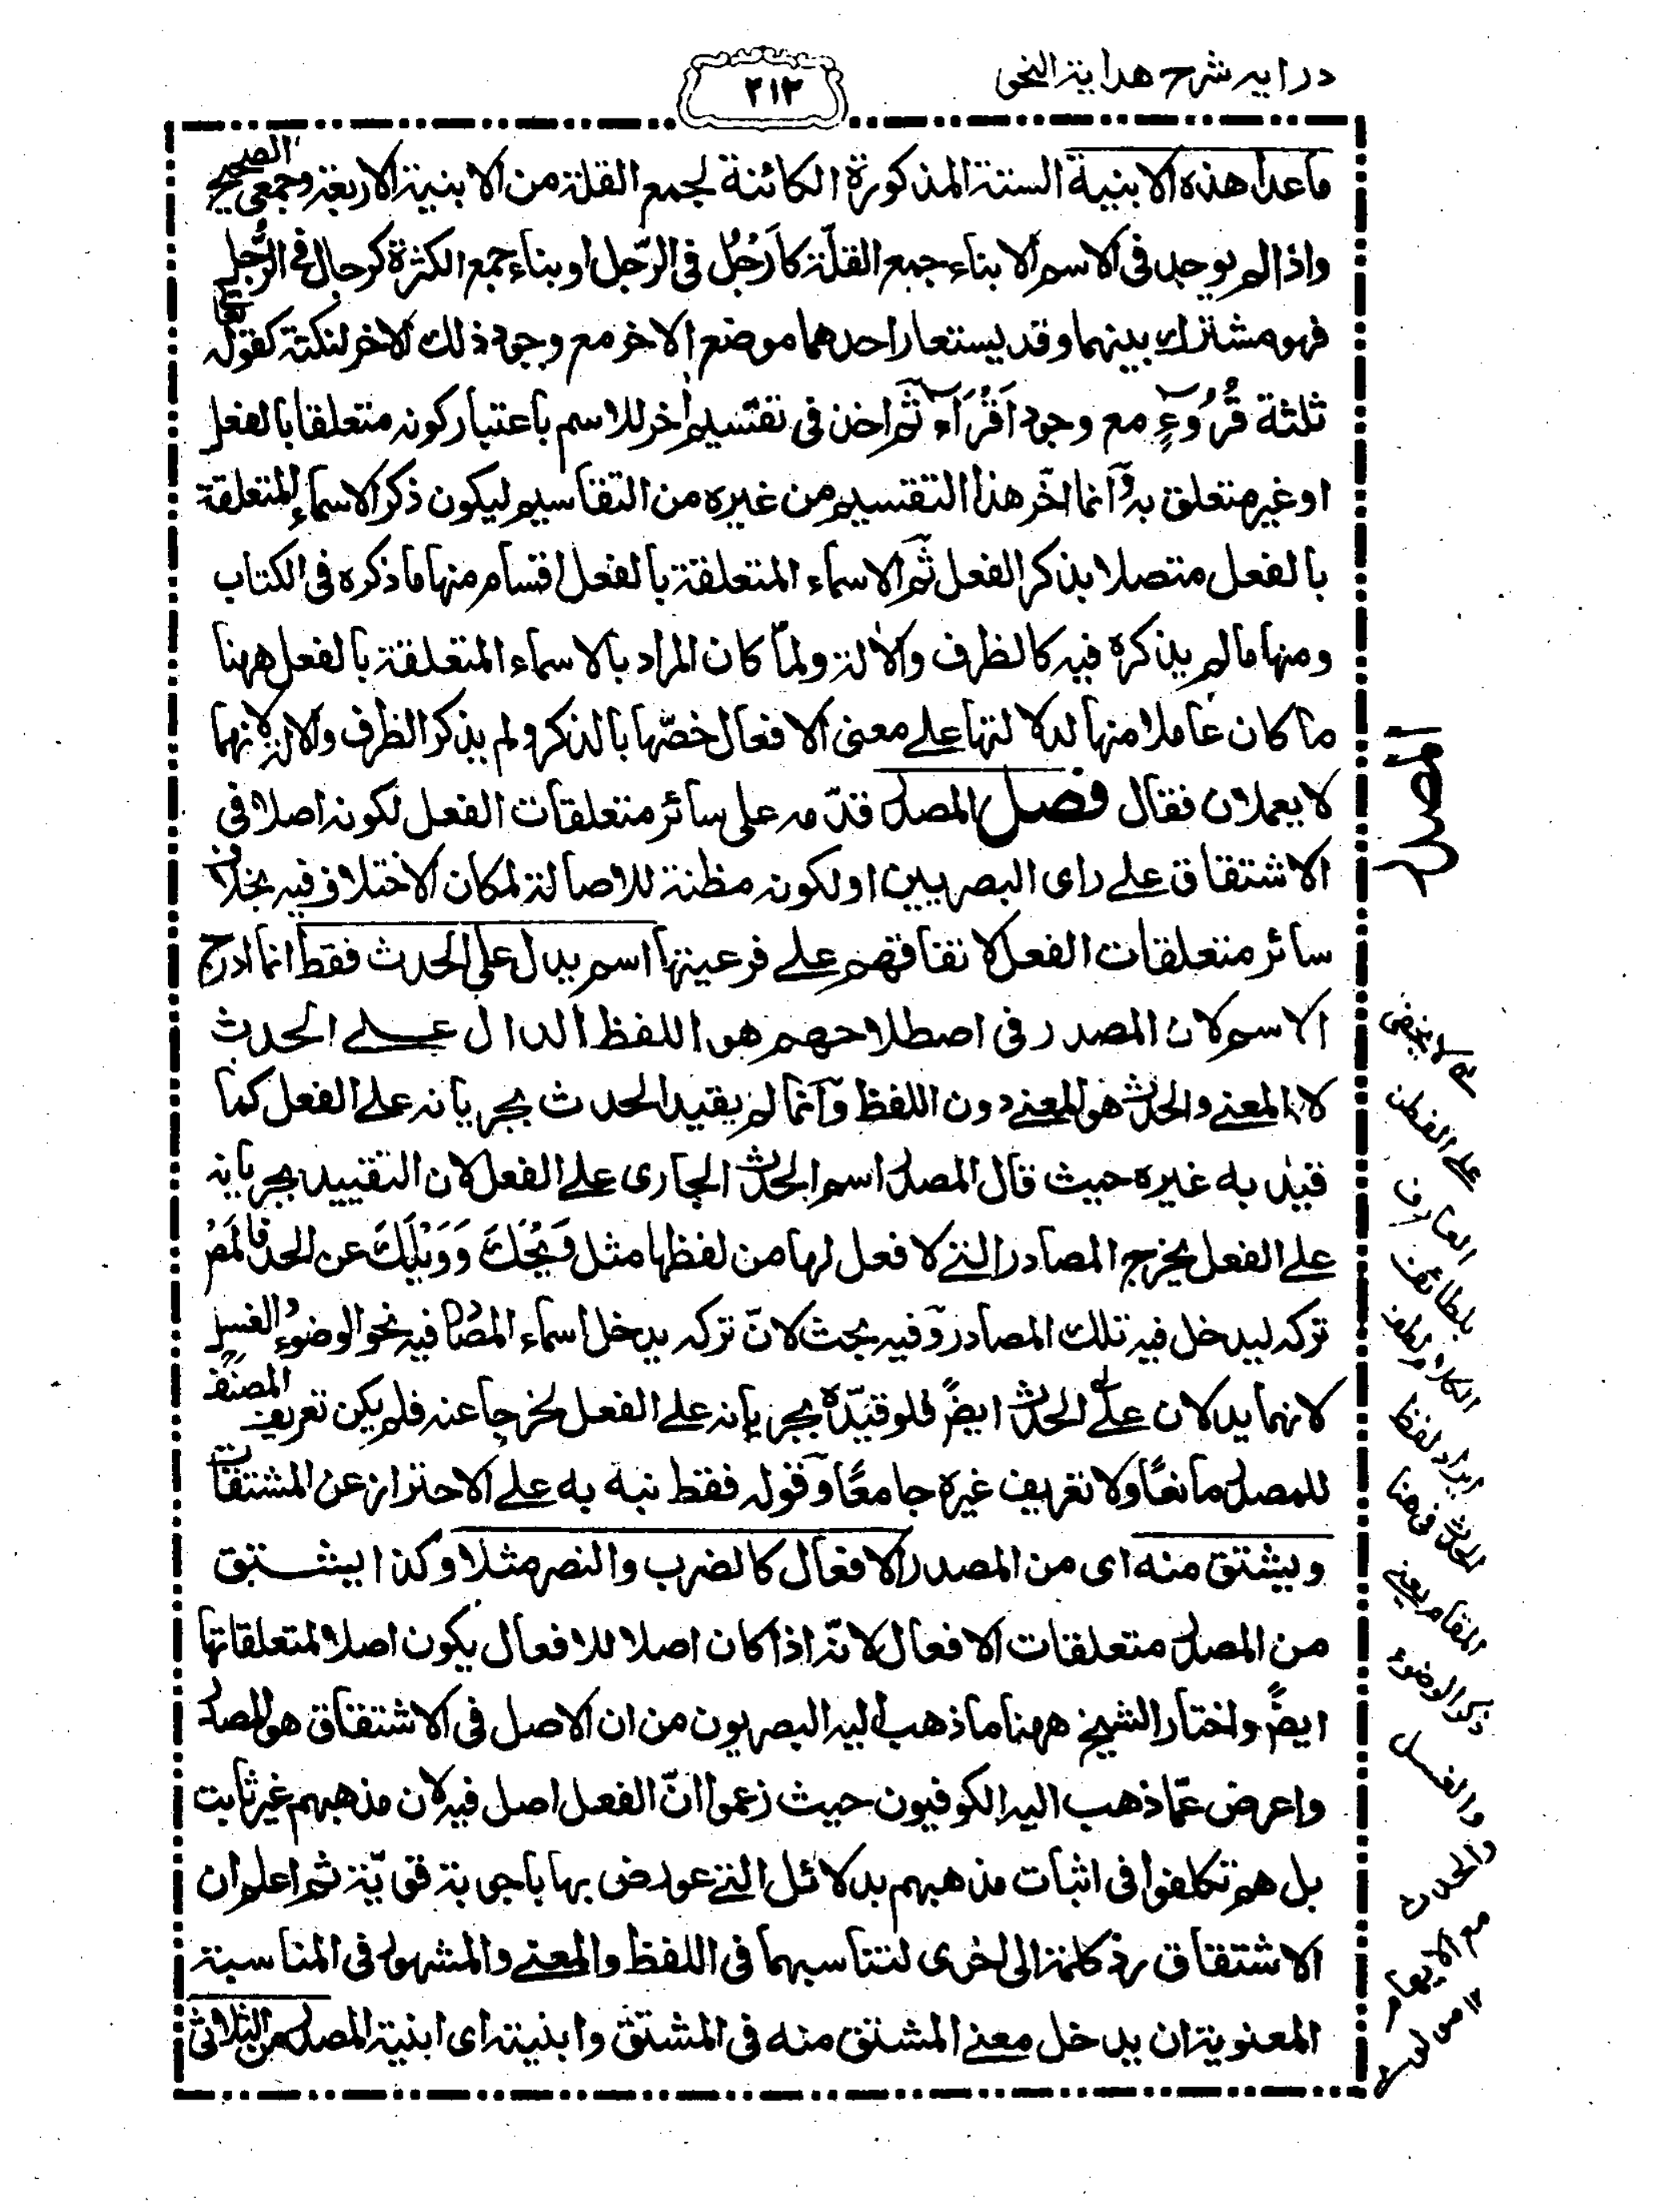 درايه شرح هداية النحو
٢١٣
ما عدا هذه الابنية الستة المذكورة الكائنة لجمع القلة من الابنية الاربعة وجمعى الصحيح
واذا لم يوجد فى الاسم الا بناء جمع القلّة كاَرْجُل فى الرّجل او بناء جمع الكثرة كرجال فى الرَّجُل
فهو مشترك بينهما وقد يستعار احدهما موضع الاخر مع وجود ذلك الاخر لنكتة كقوله تعالى
ثلثة قُرُوْٓءٍ مع وجود اَقْرَآءٍ ثم اخذ فى تقسيم اٰخر للاسم باعتبار كونه متعلقا بالفعل
او غير متعلق به وانما اخّر هذا التقسيم من غيره من التقاسيم ليكون ذكر الاسماء المتعلقة
بالفعل متصلا بذكر الفعل ثم الاسماء المتعلقة بالفعل اقسام منها ما ذكره فى الكتاب
ومنها ما لم يذكره فيه كالظرف والاٰلة ولمّا كان المراد بالاسماء المتعلقة بالفعل ههنا
ما كان عاملا منها لدلالتها على معنى الافعال خصّها بالذكر ولم يذكر الظرف والالة لانهما
لا يعملان فقال فصل المصدر قدّمه على سائر متعلقات الفعل لكونه اصلا فى
الاشتقاق على راى البصريين او لكونه مظنة للاصالة لمكان الاختلاف فيه بخلاف
سائر متعلقات الفعل لاتفاقهم على فرعيتها اسم يدل على الحدث فقط انما ادرج
الاسم لان المصدر فى اصطلاحهم هو اللفظ الدال على الحدث
لا المعنى والحدث هو المعنى دون اللفظ وانما لم يقيد الحدث بجريانه على الفعل كما
قيد به غيره حيث قال المصدر اسم الحدث الجارى على الفعل لان التقييد بجريانه
على الفعل يخرج المصادر التى لا فعل لها من لفظها مثل وَيْحَكَ وَوَيْلَكَ عن الحد فالمص
تركه ليدخل فيه تلك المصادر وفيه بحث لانّ تركه يدخل اسماء المصادر فيه نحو الوضوء والغسل
لانهما يدلان على الحدث ايضً فلو قيّده بجريانه على الفعل لخرجا عنه فلم يكن تعريف المصنف
للمصدر مانعًا ولا تعريف غيره جامعًا وقوله فقط نبه به على الاحتراز عن المشتقات
ويشتق منه اى من المصدر الافعال كالضرب والنصر مثلا وكذا يشتق
من المصدر متعلقات الافعال لانّه اذا كان اصلا للافعال يكون اصلا لمتعلقاتها
ايضً واختار الشيخ ههنا ما ذهب اليه البصريون من ان الاصل فى الاشتقاق هو المصدر
واعرض عمّا ذهب اليه الكوفيون حيث زعموا انّ الفعل اصل فيه لان مذهبهم غير ثابت
بل هم تكلفوا فى اثبات مذهبهم بدلائل التى عورض بها باجوبة قويّة ثم اعلم ان
الاشتقاق ردّ كلمة الى اخرى لتناسبهما فى اللفظ والمعنى والمشهور فى المناسبة
المعنوية ان يدخل معنى المشتق منه فى المشتق وابنيته اى ابنية المصدر من الثلاثى
المصدر
لا يخفى
على الفطن
العارف
بلطائف
الكلام
ايراد لفظ
الحدث فى هذا
المقام يعنى
ذكر الوضوء
والغسل
والحدث
مع الايهام